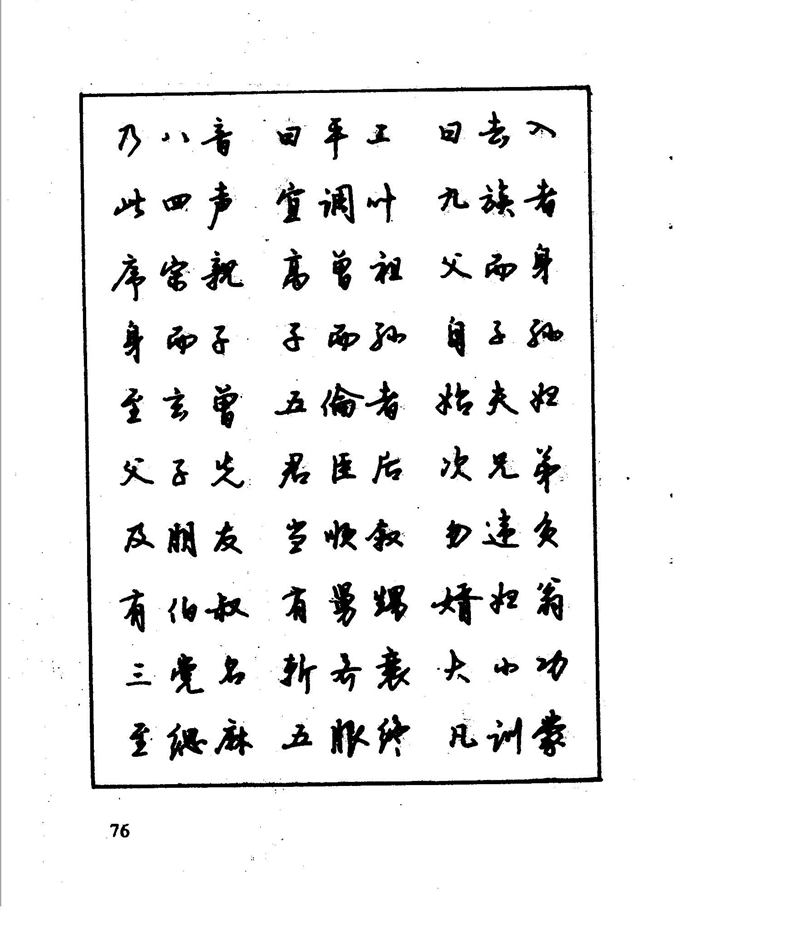 乃八音 曰平上 曰去入
此四声 宜调叶 九族者
序宗亲 高曾祖 父而身
身而子 子而孙 自子孙
至玄曾 五伦者 始夫妇
父子先 君臣后 次兄弟
及朋友 当顺叙 勿违负
有伯叔 有舅甥 婿妇翁
三党名 斩齐衰 大小功
至缌麻 五服终 凡训蒙
76